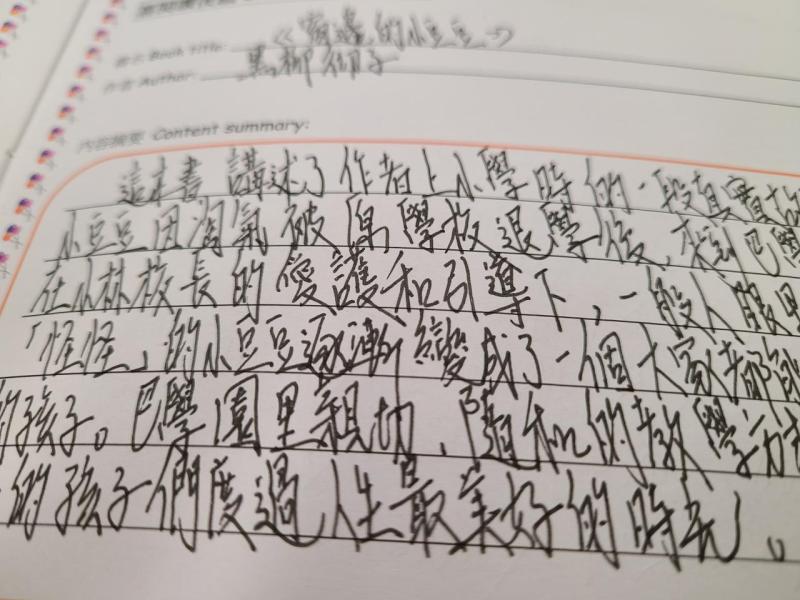 書名 Book Title: 《窗邊的小豆豆》
作者 Author: 黑柳徹子
內容摘要 Content summary:
這本書講述了作者上小學時的一段真實
小豆豆因淘氣被原學校退學後,來到巴學
在小林校長的愛護和引導下,一般人眼里
「怪怪」的小豆豆逐漸變成了一個大家都能
的孩子。巴學園里親切、隨和的教學方
的孩子們度過人生最美好的時光。